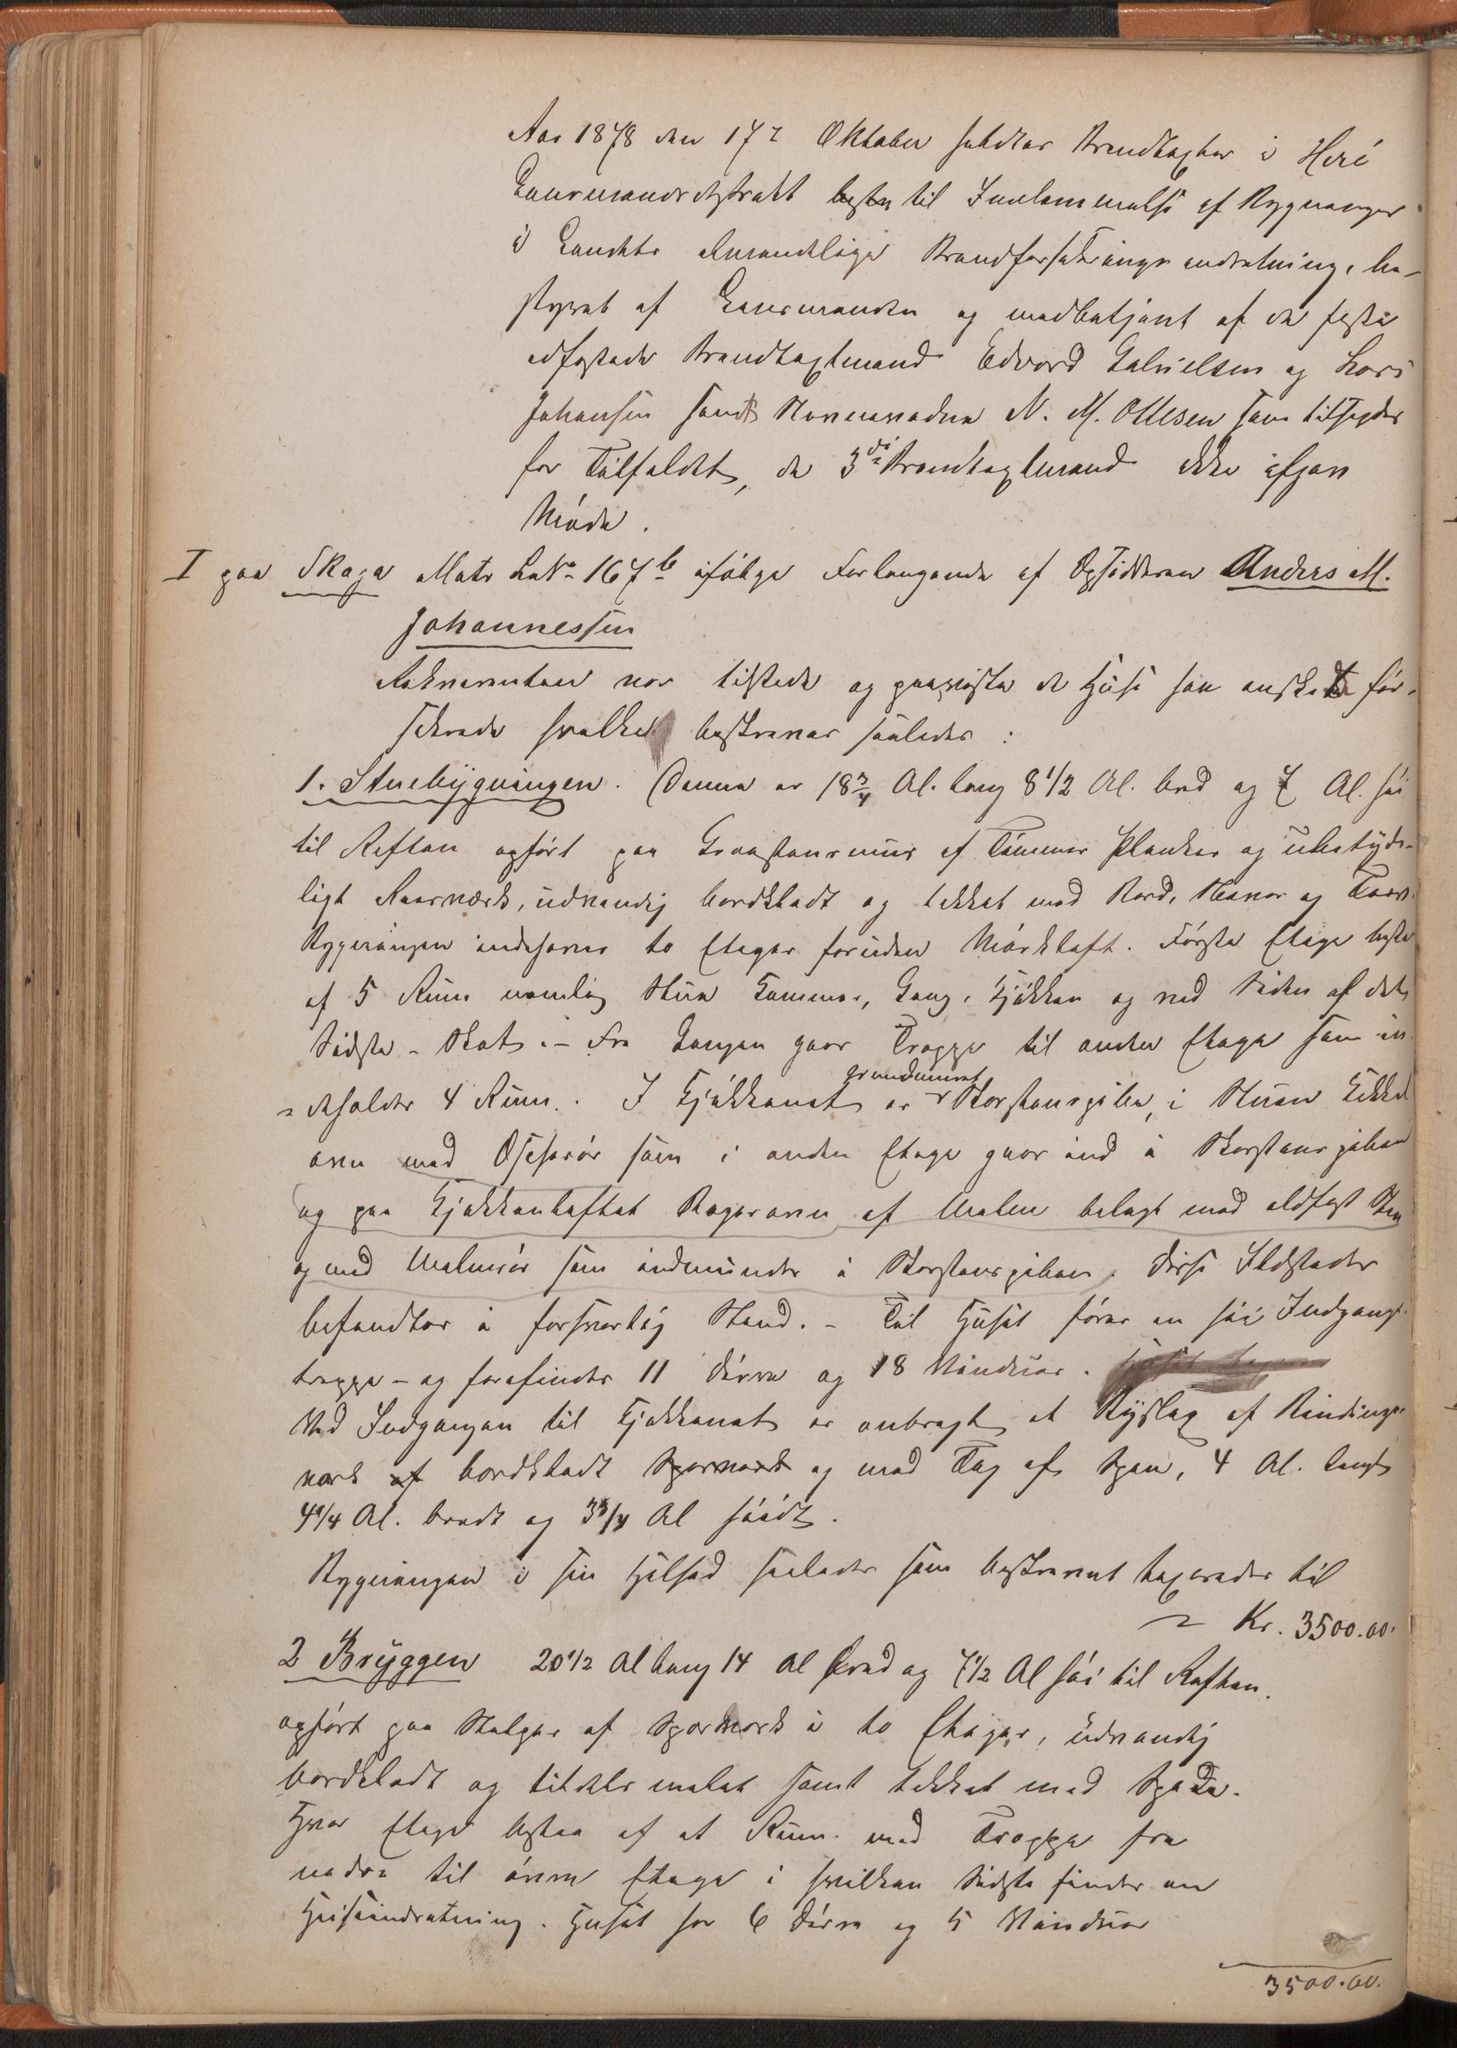 Aar 1878 den 17de Oktober holdtes Brandtaxter i Herø
Lensmandsdistrikt til Indlemmelse af Bygninger
i Landets almindelige Brandforsikringsindretning, be-
styret af Lensmanden og medbetjent af de faste
edfæstede Brandtaxtmænd Edvard Gabrielsen og Lars
Johansen samt Stevnevidne N. M. Ottesen som tilsagdes
for Tilfældet, da 3die Brandtaxtmand ikke afgav
Møde.
I paa Skaga Matr. LNo 167b ifølge Forlangende af Opsidderen Anders M.
Johannessen
Rekvirenten var tilstede og paaviste de Huse som ønskedes for-
sikrede hvilke beskrives saaledes:
1. Stuebygningen. Denne er 18 3/4 Al. lang 8 1/2 Al. bred og 7 Al. høi
til Raften opført paa Graastensmur af Tømmer Planker og ubetyde-
ligt Reisverk, udvendig bordklædt og tækket med Bord, Næver og Torv.
Bygningen indehaver to Etager foruden Mørkloft. Første Etage bestaar
af 5 Rum nemlig Stue Kammer, Gang, Kjøkken og ved Siden af det
Sidste - . - Fra Gangen gaar Trappe til anden Etage som in-
deholder 4 Rum. I Kjøkkenet er grundmuret Skorstenspibe, i Stuen Kakkel-
ovn med som i anden Etage gaar ind i Skorstenspiben
og paa Kjøkkenloftet Bagerovn af Malm belagt med ildfast Sten
og med Malmrør som indmunder i Skorstenspiben. Disse Ildsteder
befandtes i forsvarlig Stand. - Til Huset fører en høi Indgangs-
trappe - og forefindes 11 Døre og 18 Vinduer.
Ved Indgangen til Kjøkkenet er anbragt et Bislag af Bindings-
verk bordklædt og med Tag af Spon, 4 Al. langt
4 1/4 Al. bredt og 3 3/4 Al høiet.
Bygningen i sin Helhed saaledes som beskrevet taxeredes til
Kr. 3500.00.
2 Bryggen 20 1/2 Al lang 14 Al bred og 7 1/2 Al høi til Raften.
opført paa Stolper af Sperverk i to Etager, udvendig
bordklædt og tildels malet samt tækket med
Hver Etage bestaar af et Rum med Trappe fra
nedre til øvre Etage i hvilken Sidste findes en
Heiseindretning. Huset har 6 Døre og 5 Vinduer
3500.00.